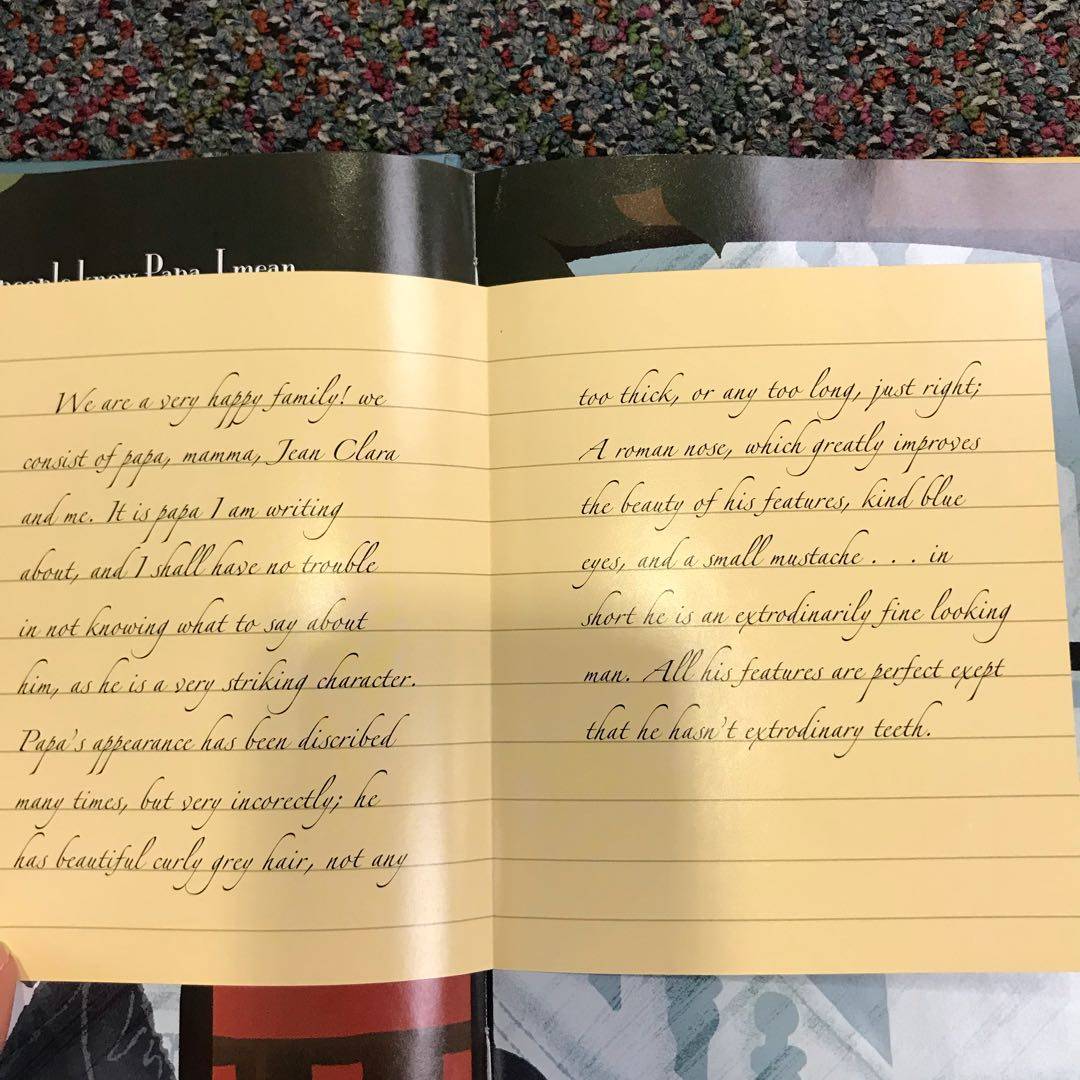 know Papa. I mean
We are a very happy family! we
consist of papa, mamma, Jean Clara
and me. It is papa I am writing
about, and I shall have no trouble
in not knowing what to say about
him, as he is a very striking character.
Papa's appearance has been discribed
many times, but very incorectly; he
has beautiful curly grey hair, not any
too thick, or any too long, just right;
A roman nose, which greatly improves
the beauty of his features, kind blue
eyes, and a small mustache . . . in
short he is an extrodinarily fine looking
man. All his features are perfect exept
that he hasn't extrodinary teeth.